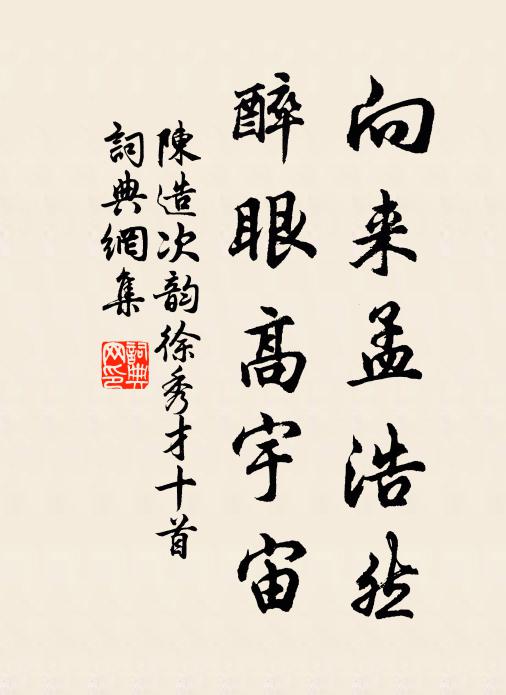 向来孟浩然
醉眼高宇宙
陳造次韵徐秀才十首
詞典網集
詞典
网印